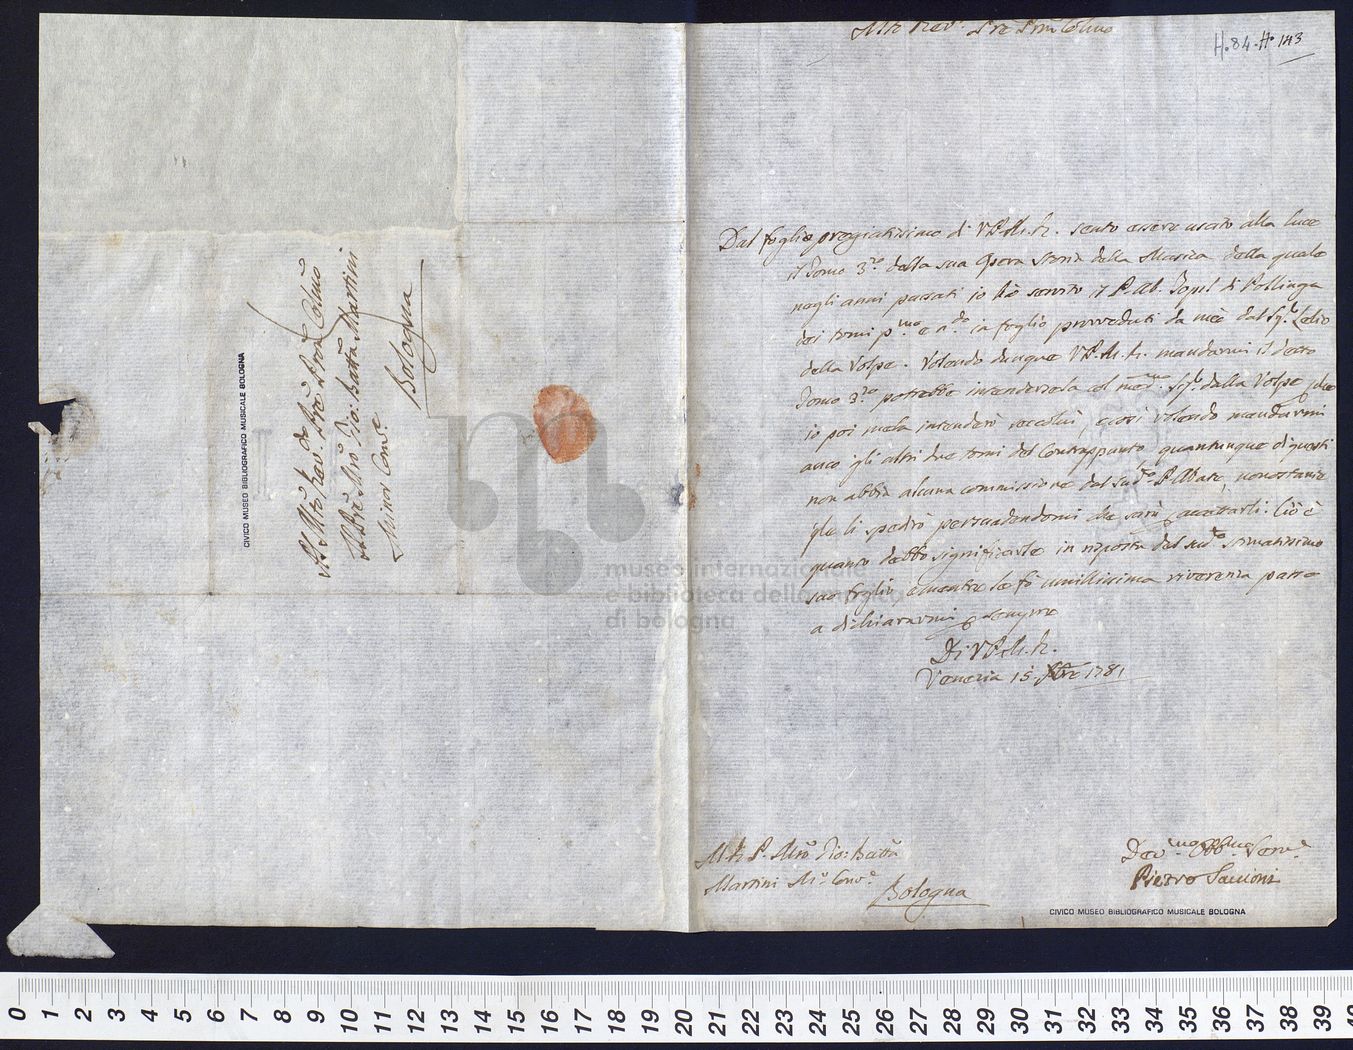 H.84. H. 143
Mto Rev: Pre Prōn Colmo
Dal foglio pregiatissimo di V.P.M.R. sento essere uscito alla luce
il Tomo 3.º della sua Opera Storia della Musica della quale
negli anni passati io hò servito il P. Ab. di Pollinga
dei tomi p.mo e 2.do in foglio proveduti da mè dal Sig.r Lelio
della Volpe. Volendo dunque V.P.M.R. mandarmi il detto
Tomo 3.zo potrebbe intendersela col med.mo Sig.r dalla Volpe che
io poi me la intenderò secolui, e così volendo mandarmi
anco gli altri due tomi del Contrappunto quantunque di questi
non abbia alcuna commissione dal sud.to P. Abate, nonostante
glie li spedirò persuadendomi che sarà p accettarli. Ciò è
quanto debbo significarle in risposta del sud.to stimatissimo
suo foglio, e mentre le fò umilissima riverenza passo
a dichiararmi p sempre
Di V.P.M.R.
Venezia 15 1781
M R P. Mrō Gio: Battā
Martini Mi.r Conv.e
Bologna
Dev.mo Obb.mo Serv.e
Pietro
CIVICO MUSEO BIBLIOGRAFICO MUSICALE BOLOGNA
Al Molto Rev.do Pre Prōn Colmō
Il Pre Mrō Gio: Battā Martini
Minor Conv.e
Bologna
CIVICO MUSEO BIBLIOGRAFICO MUSICALE BOLOGNA
museo internazionale
e biblioteca della musica
di bologna
0 1 2 3 4 5 6 7 8 9 10 11 12 13 14 15 16 17 18 19 20 21 22 23 24 25 26 27 28 29 30 31 32 33 34 35 36 37 38 39 40